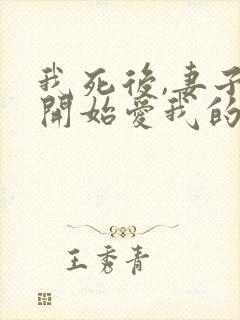 我死後,妻子
開始愛我的
王秀青